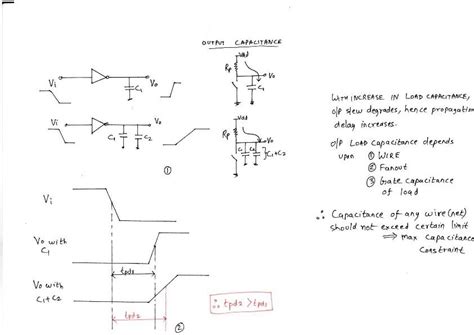 OUTPUT CAPACITANCE
Vi
Vo
C1
Vdd
Rp
Vo
C1
Vi
Vo
C1
C2
Vdd
Rp
Vo
C1
C2
C1+C2
①
WITH INCREASE IN LOAD CAPACITANCE,
o/p slew degrades, hence propagation
delay increases.
O/P LOAD Capacitance depends
upon ① WIRE
② Fanout
③ Gate capacitance
of load
∴ Capacitance of any wire (net)
should not exceed certain limit
⇒ max Capacitance
Constraint
Vi
Vo with
C1
tpd1
Vo with
C1+C2
tpd2
∴ tpd2 > tpd1
②